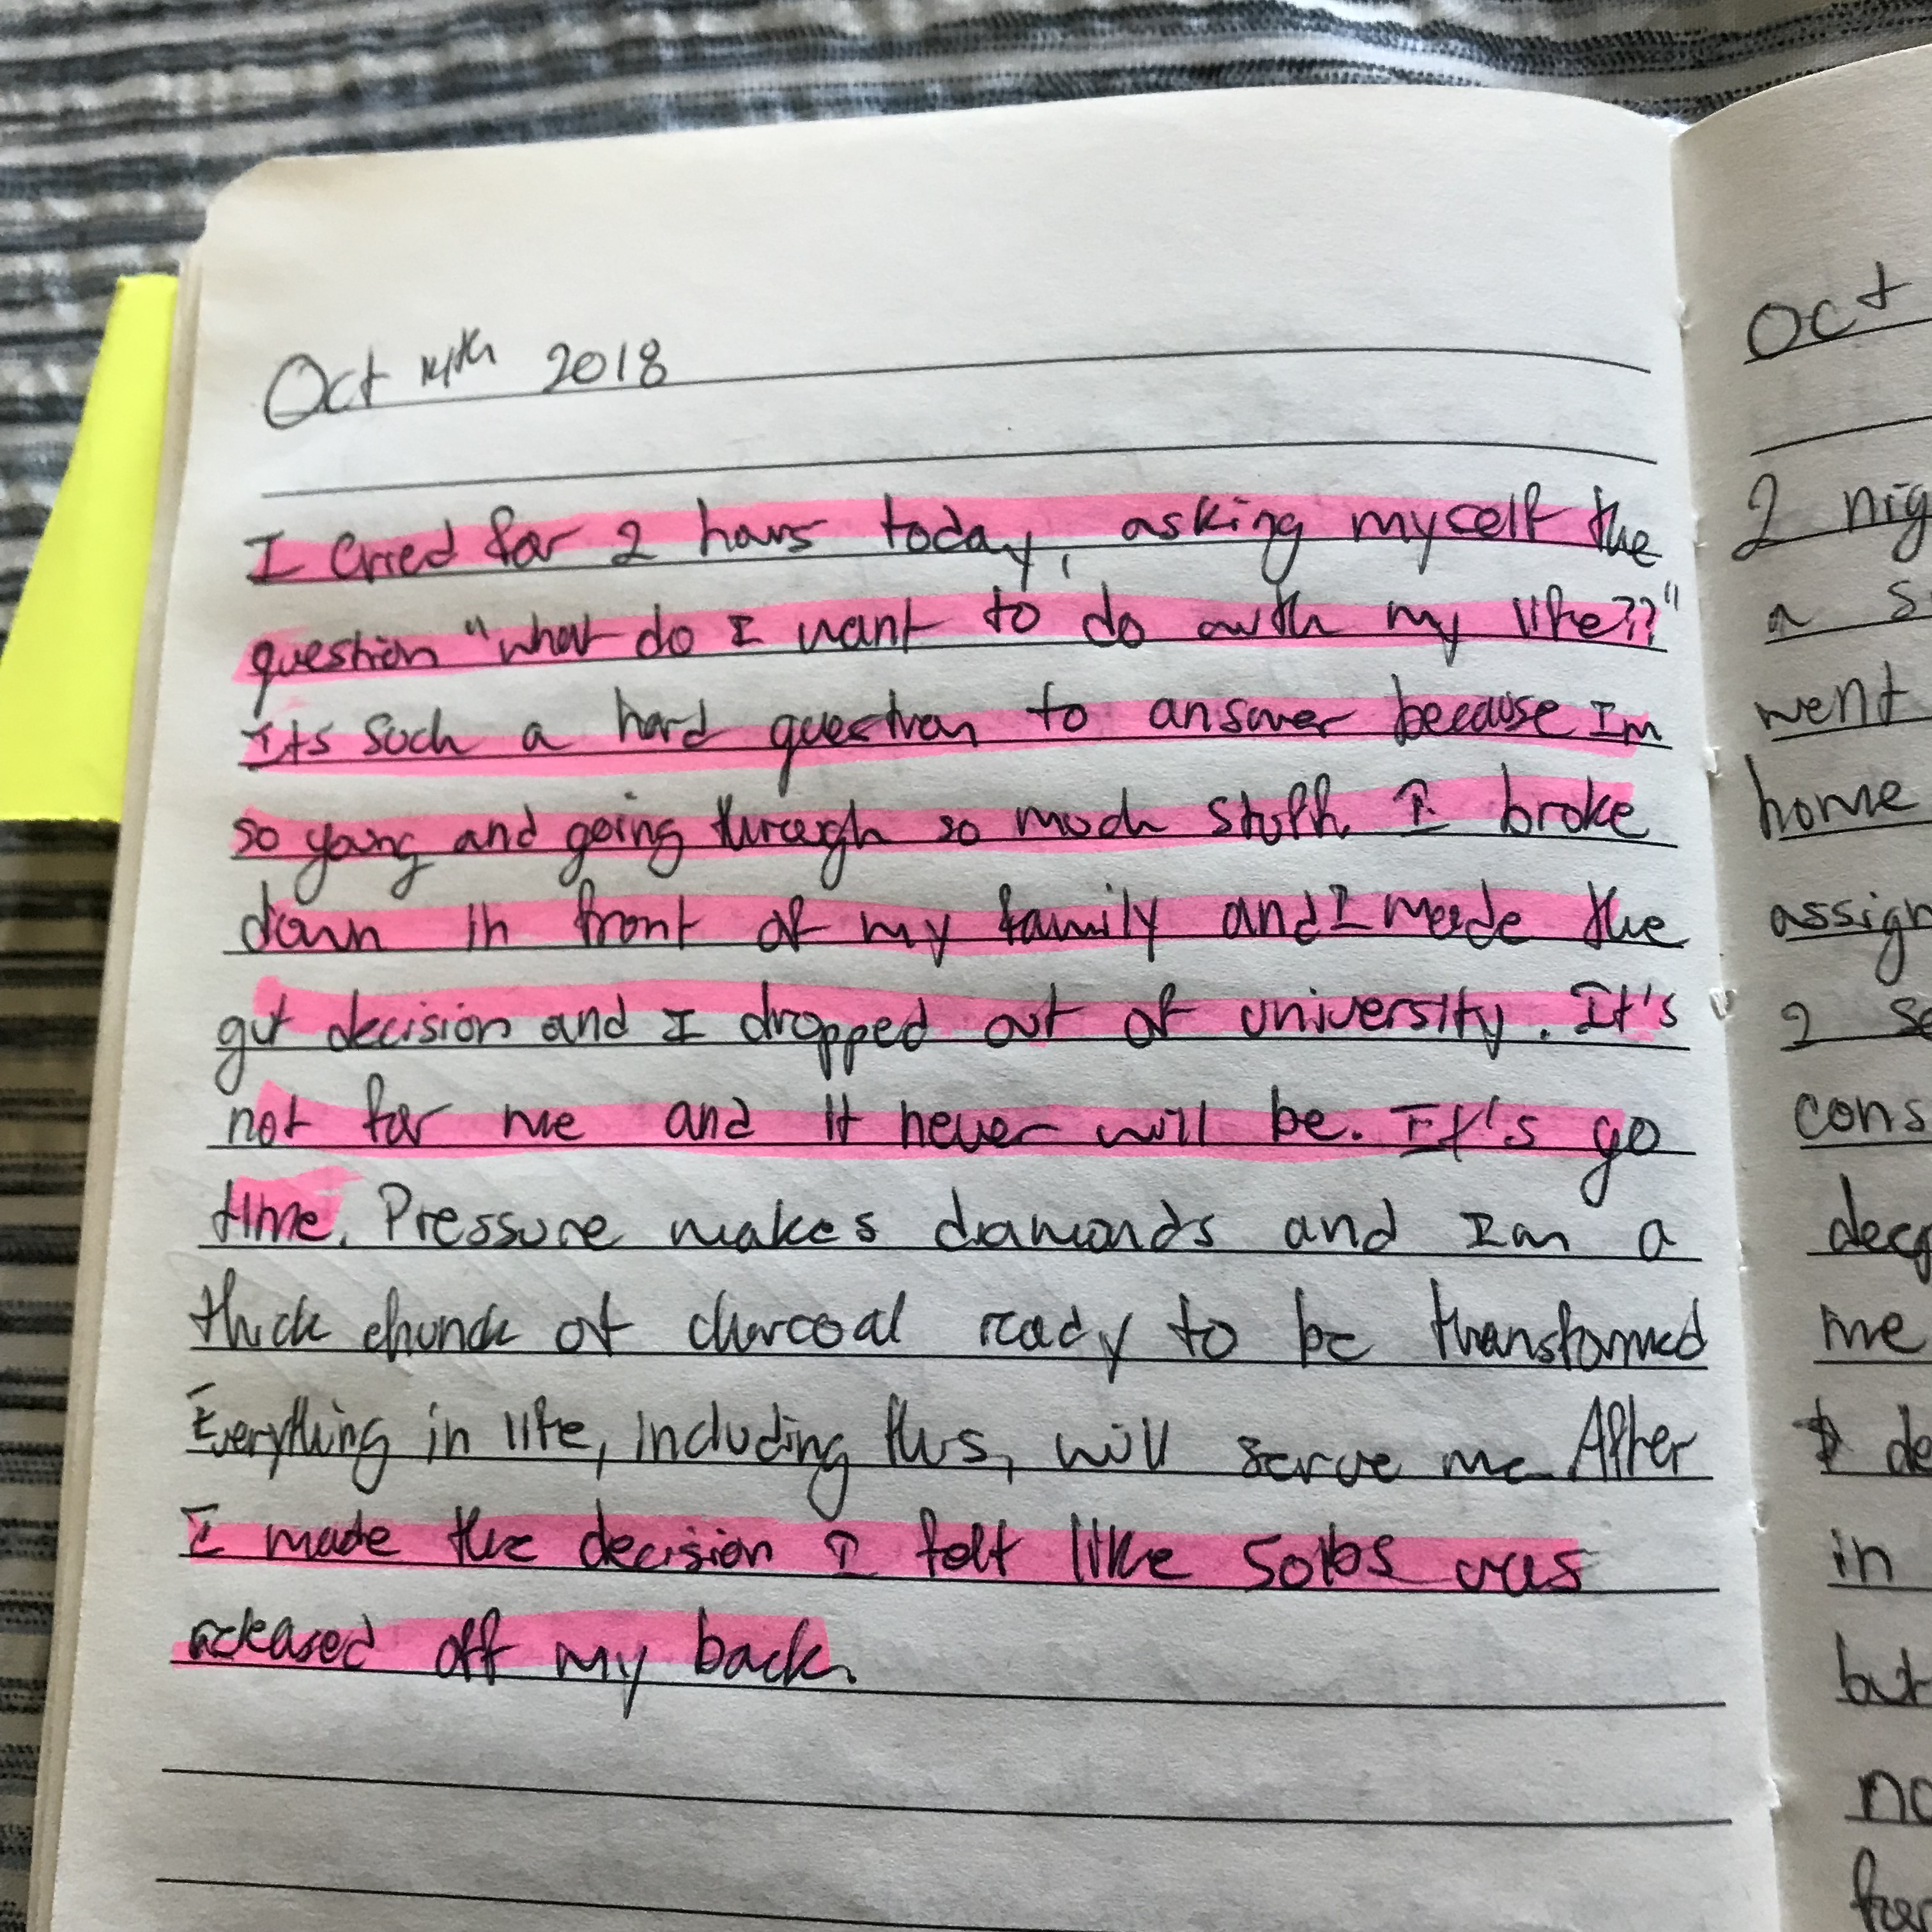 Oct 14th 2018
I cried for 2 hours today, asking myself the
question "what do I want to do with my life??"
Its such a hard question to answer because Im
so young and going through so much stuff. I broke
down in front of my family and I made the
gut decision and I dropped out of university. It's
not for me and it never will be. It's go
time. Pressure makes diamonds and Im a
thick chunck of charcoal ready to be transformed
Everything in life, including this, will serve me. After
I made the decision I felt like 50lbs was
released off my back.
Oct
2 nig
a s
went
home
assign
2 se
cons
dec
me
de
in
but
no
for